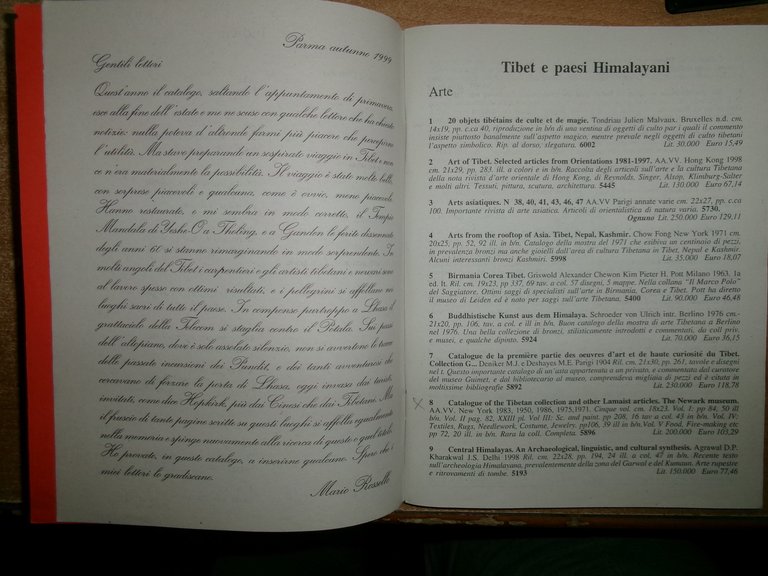 Parma autunno 1999
Gentili lettori
Quest'anno il catalogo, saltando l'appuntamento di primavera,
esce alla fine dell'estate e me ne scuso con qualche lettore che ha chiesto
notizie: nulla poteva d'altronde farmi più piacere che pareggiare
l'utilità. Ma stavo preparando un sospirato viaggio in Tibet e non
ce n'era materialmente la possibilità. Il viaggio è stato molto bello,
con sorprese piacevoli e qualcuna, come è ovvio, meno piacevole.
Hanno restaurato, e mi sembra in modo corretto, il Tempio
Mandala di Yeshe-O a Tholing, e a Ganden le ferite disumane
degli anni 60 si stanno rimarginando in modo sorprendente. In
molti angoli del Tibet i carpentieri e gli artisti tibetani e newari sono
al lavoro spesso con ottimi risultati, e i pellegrini si affollano nei
luoghi sacri di tutto il paese. In compenso purtroppo a Lhasa il
grattacielo della Telecom si staglia contro il Potala. Sui passi
dell'altopiano, dove è solo assoluto silenzio, non si avvertono le trame
delle passate incursioni dei Pundit, e dei tanti avventurosi che
cercavano di forzare la porta di Lhasa, oggi invasa dai turisti,
invitati, come dice Hopkirk, più dai Cinesi che dai Tibetani. Ma
il fruscio di tante pagine scritte su questi luoghi si affolla egualmente
nella memoria e spinge nuovamente alla ricerca di questo o quel titolo.
Ho provato, in questo catalogo, a inserirne qualcuno. Spero che i
miei lettori lo gradiscano.
Mario Rossello
Tibet e paesi Himalayani
Arte
1 20 objets tibétains de culte et de magie. Tondriau Julien Malvaux. Bruxelles n.d. cm.
14x19, pp. c.ca 40, riproduzione in b/n di una ventina di oggetti di culto par i quali il commento
insiste piuttosto banalmente sull'aspetto magico, mentre prevale negli oggetti di culto tibetani
l'aspetto simbolico. Rip. al dorso, slegatura. 6002 Lit. 30.000 Euro 15,49
2 Art of Tibet. Selected articles from Orientations 1981-1997. AA.VV. Hong Kong 1998
cm. 21x29, pp. 283. ill. a colori e in b/n. Raccolta degli articoli sull'arte e la cultura Tibetana
della nota rivista d'arte orientale di Hong Kong, di Reynolds, Singer, Alsop, Klimburg-Salter
e molti altri. Tessuti, pittura, scultura, architettura. 5445 Lit. 130.000 Euro 67,14
3 Arts asiatiques. N 38, 40, 41, 43, 46, 47 AA.VV Parigi annate varie cm. 22x27, pp. c.ca
100. Importante rivista di arte asiatica. Articoli di orientalistica di natura varia. 5730.
Ognuno Lit. 250.000 Euro 129,11
4 Arts from the rooftop of Asia. Tibet, Nepal, Kashmir. Chow Fong New York 1971 cm.
20x25, pp. 52, 92 ill. in b/n. Catalogo della mostra del 1971 che esibiva un centinaio di pezzi,
in prevalenza bronzi ma anche gioielli dell'area di cultura Tibetana in Tibet, Nepal e Kashmir.
Alcuni interessanti bronzi Kashmiri. 5998 Lit. 35.000 Euro 18,07
5 Birmania Corea Tibet. Griswold Alexander Chewon Kim Pieter H. Pott Milano 1963, 1a
ed. It. Ril. cm. 19x23, pp 337, 69 tav. a col. 57 disegni, 5 mappe. Nella collana "Il Marco Polo"
del Saggiatore, Ottimi saggi di specialisti sull'arte in Birmania, Corea e Tibet. Pott ha diretto
il museo di Leiden ed è noto per saggi sull'arte Tibetana. 5400 Lit. 90.000 Euro 46,48
6 Buddhistische Kunst aus dem Himalaya. Schroeder von Ulrich intr. Berlino 1976 cm.-
21x20, pp. 106, tav, a col. e ill in b/n. Buon catalogo della mostra di arte Tibetana a Berlino
nel 1976. Una bella collezione di bronzi, stilisticamente introdotti e commentati, da coll priv.
e musei, e qualche dipinto. 5924 Lit. 70.000 Euro 36,15
7 Catalogue de la première partie des oeuvres d'art et de haute curiosité du Tibet.
Collection G... Deniker M.J. e Deshayes M.E. Parigi 1904 Ril. cm. 21x30, pp. 261, tavole e disegni
nel t. Questo importante catalogo di un'arta appartenuta a un privato, e commentato dal curatore
del museo Guimet, e dal bibliotecario al museo, comprendeva migliaia di pezzi ed è citato in
moltissime bibliografie 5892 Lit. 230.000 Euro 118,78
8 Catalogue of the Tibetan collection and other Lamaist articles. The Newark museum.
AA.VV. New York 1983, 1950, 1986, 1975,1971. Cinque vol. cm. 18x23. Vol. I: pp 84, 50 ill
b/n. Vol. II pag. 82, XXIII pl. Vol III: Sc. and paint. pp 208, 16 tav a col, 43 in b/n. Vol. IV:
Textiles, Rugs, Needlework, Costume, Jewelry. pp106, 39 ill in b/n.Vol. V Food, Fire-making etc
pp 72, 20 ill. in b/n. Rara la coll. Completa. 5896 Lit. 200.000 Euro 103,29
9 Central Himalayas. An Archaeological, linguistic, and cultural synthesis. Agrawal D.P.
Kharakwal J.S. Delhi 1998 Ril. cm. 22x28, pp. 194, 24 ill. a col, 47 in b/n. Recente testo
sull'archeologia Himalayana, prevalentemente della zona del Garwal e del Kumaon. Arte rupestre
e ritrovamenti di tombe. 5193 Lit. 150.000 Euro 77,46